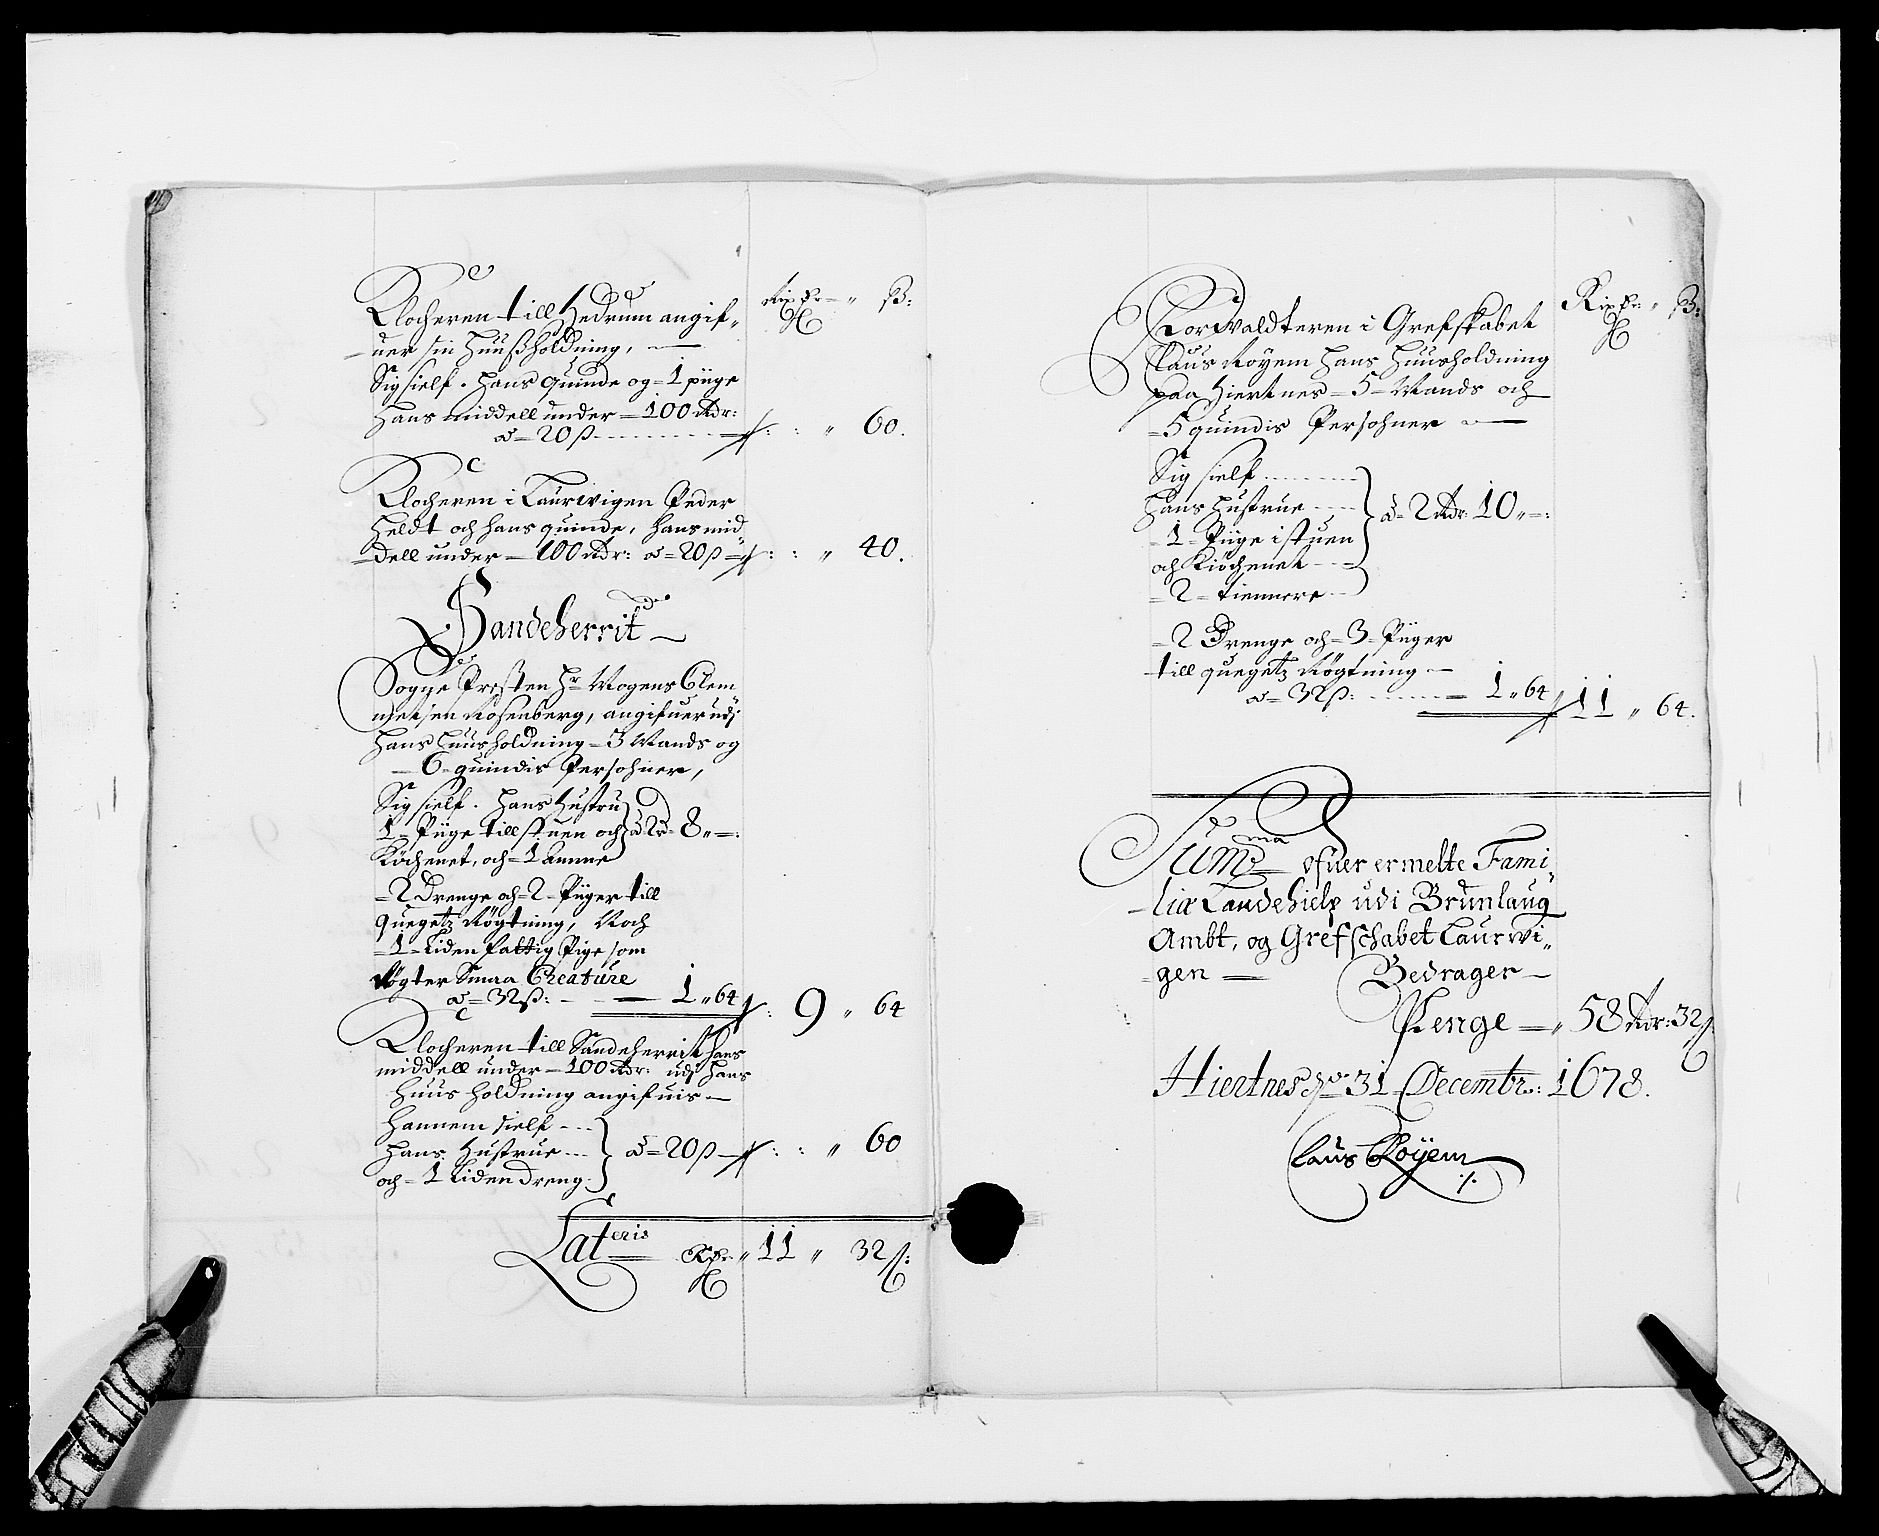 Rix dr „ ß:
Klocheren till Hedrum angif„
„uer sin Huußholdning,
Sig sielf. Hans quinde og 1 piige
Hans middell under 100 Rdr:
a 20 ß : : „ 60.
Klocheren i Laurwigen Peder
Heldt och hans quinde, hans mid„
dell under 100 Rdr: a 20 ß : : „ 40.
Sandeherrit
Sogne Presten Hr Mogens Clem„
metsen Rosenberg, angifuer udj
Hans Huusholdning 3 Mands og
6 quindis Persohner,
Sig sielf. Hans Hustru
1 Piige till stuen och a 2 rd 8 „ :
Köchenet, och 1 Amme
2 Drenge och 2 Piiger till
quegetz Røgtning, Noch
1 Liden fattig Pige som
Røgter Smaa Creature
a 32 ß: 1 „ 64 : 9 „ 64
Klocheren till Sandeherrit hans
middell under 100 Rdr: udj hans
huus holdning angifuis
Hannem sielf
Hans Hustrue a 20 ß : : „ 60
och 1 Liden dreng
Lateris Rdr „ 11 „ 32 ß:
Rix dr „ ß:
Forwaldteren i Grefskabet
Claus Røyem Hans Huusholdning
paa Hiertnes 5 Mands och
5 quindis Persohner
Sig sielf
Hans Hustrue a 2 Rdr 10 „ :
1 Piige i stuen
och Kiöchenet
2 tiennere
2 Drenge och 3 Piiger
till quegetz Røgtning
a 32 ß: 1 „ 64 11 „ 64.
Summa ofuer ermelte Fami„
lia Landehielp udi Brunlaug
Ambt, og Grefschabet Laurwi„
gen Bedrager
Penge „ 58 Rdr: 32 ß:
Hiertnes d 31 Decembr: 1678.
Claus Røyem